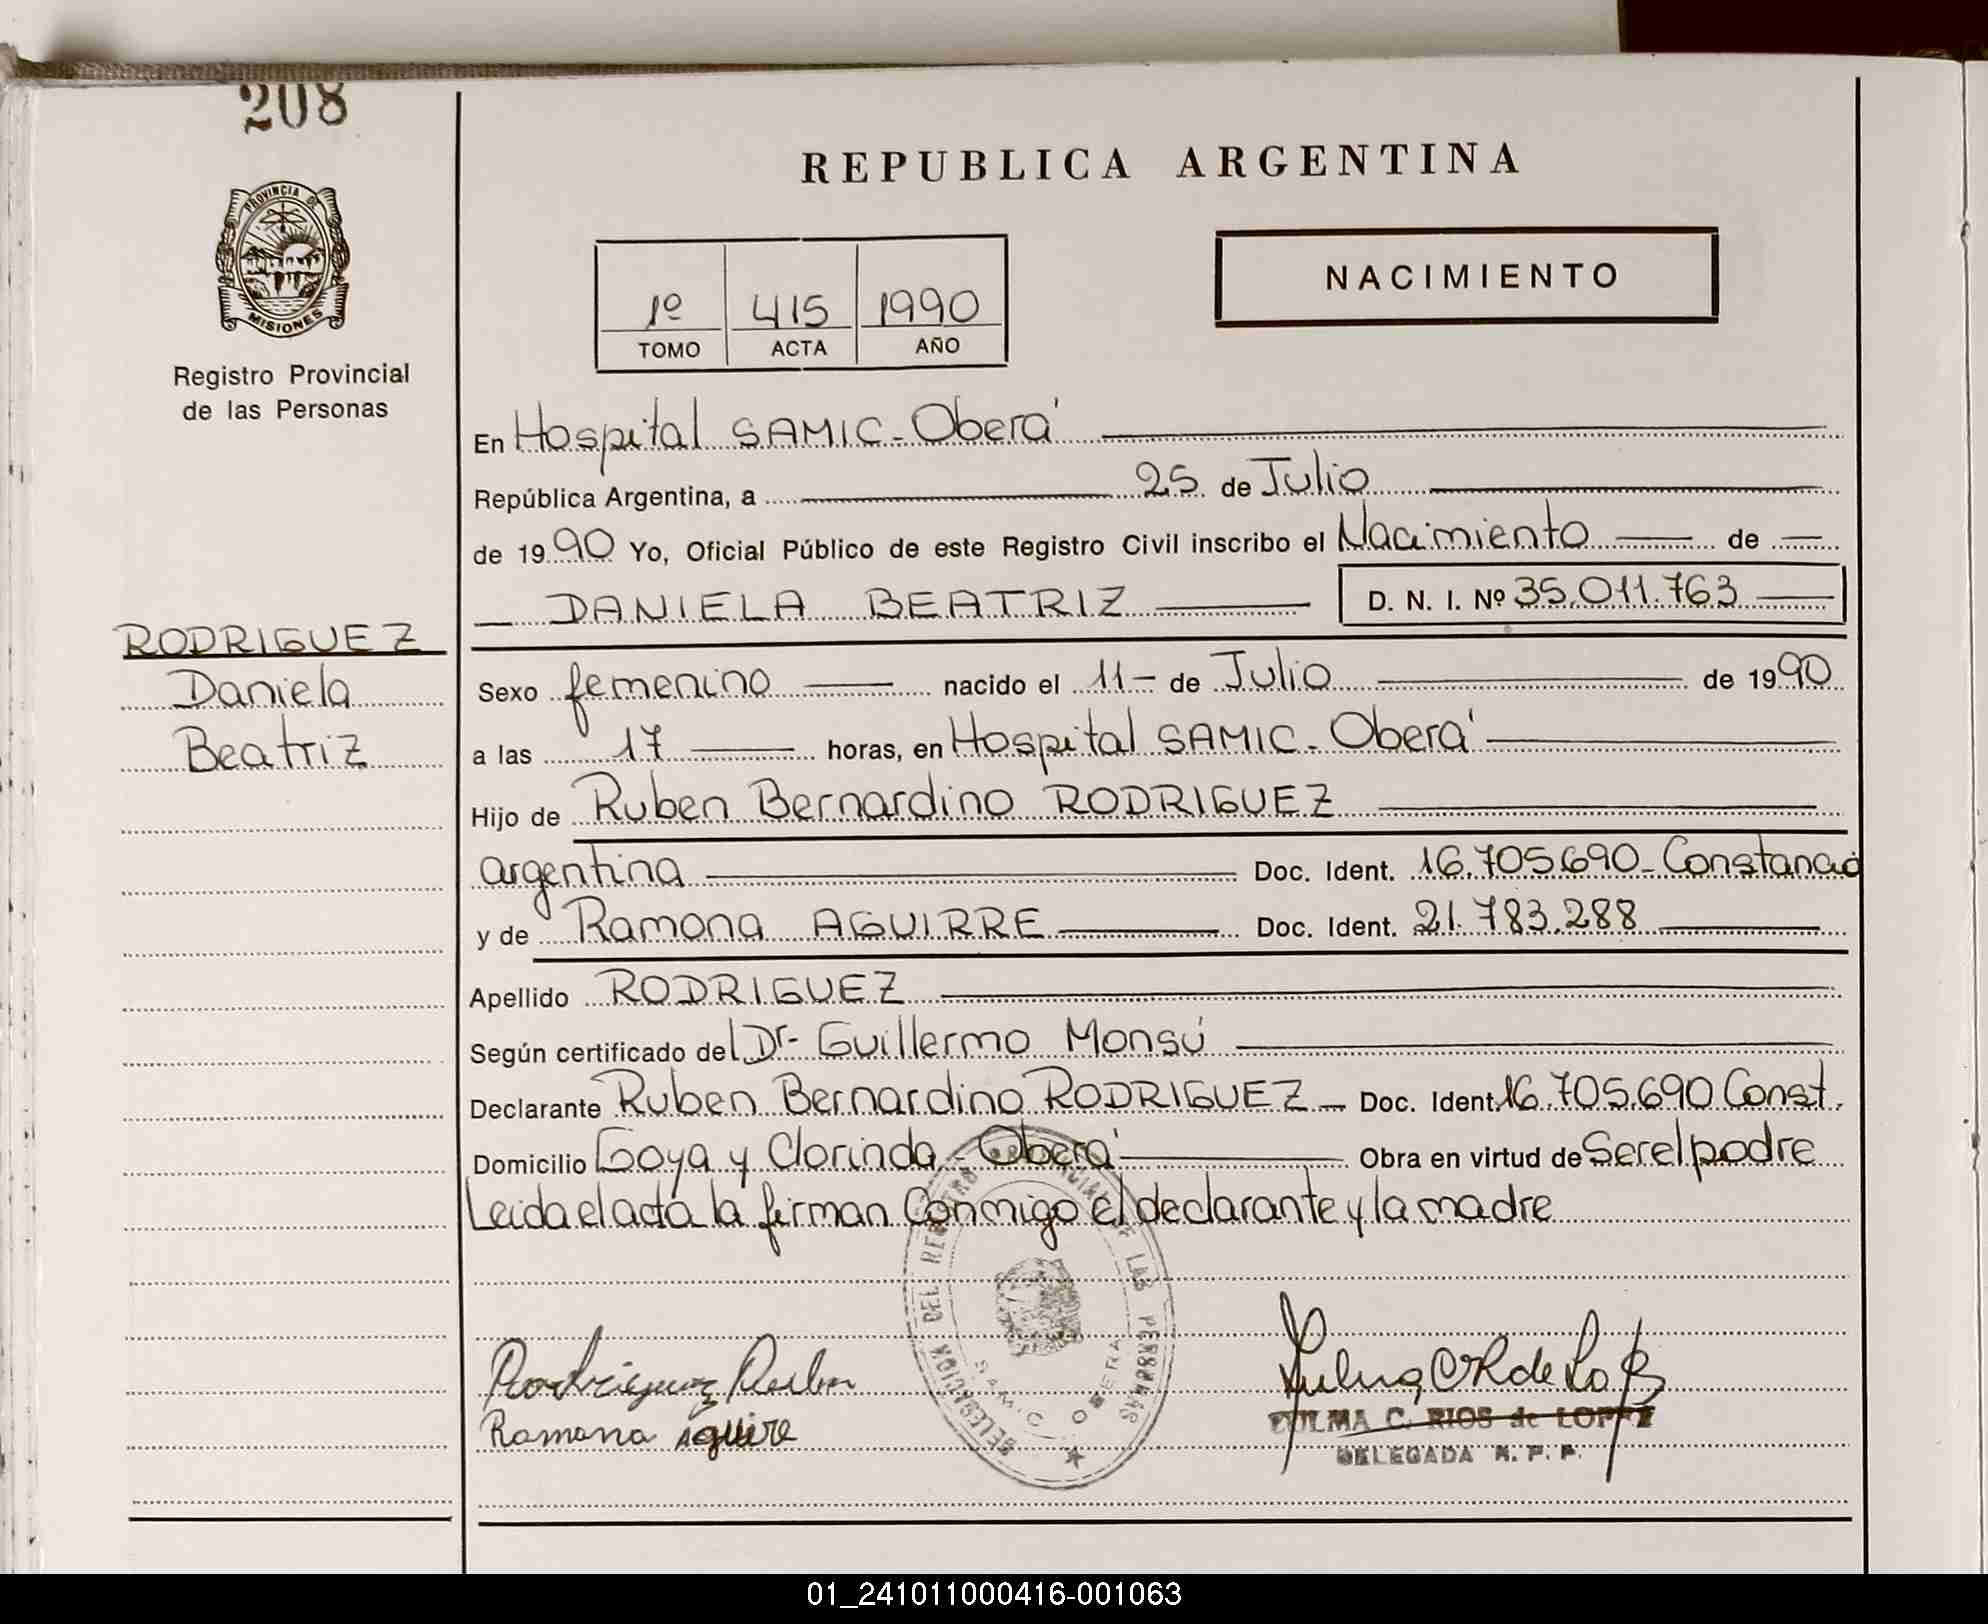 208
REPUBLICA ARGENTINA
PROVINCIA DE
MISIONES
Registro Provincial
de las Personas
1º 415 1990
TOMO ACTA AÑO
NACIMIENTO
En Hospital SAMIC - Oberá
República Argentina, a 25 de Julio
de 1990 Yo, Oficial Público de este Registro Civil inscribo el Nacimiento de
DANIELA BEATRIZ D. N. I. Nº 35.011.763
RODRIGUEZ
Daniela
Beatriz
Sexo femenino nacido el 11- de Julio de 1990
a las 17 horas, en Hospital SAMIC - Oberá
Hijo de Ruben Bernardino RODRIGUEZ
argentina Doc. Ident. 16.705.690 - Constancia
y de Ramona AGUIRRE Doc. Ident. 21.783.288
Apellido RODRIGUEZ
Según certificado del Dr- Guillermo Monsú
Declarante Ruben Bernardino RODRIGUEZ Doc. Ident. 16.705.690 Const.
Domicilio Goya y Clorinda - Oberá Obra en virtud de Ser el padre
Leida el acta la firman Conmigo el declarante y la madre
DELEGACION DEL REGISTRO PROVINCIAL DE LAS PERSONAS
SAMIC OBERA
Rodriguez Ruben
Ramona Aguire
ZULMA C. RIOS de LOPEZ
DELEGADA R. P. P.
01_241011000416-001063